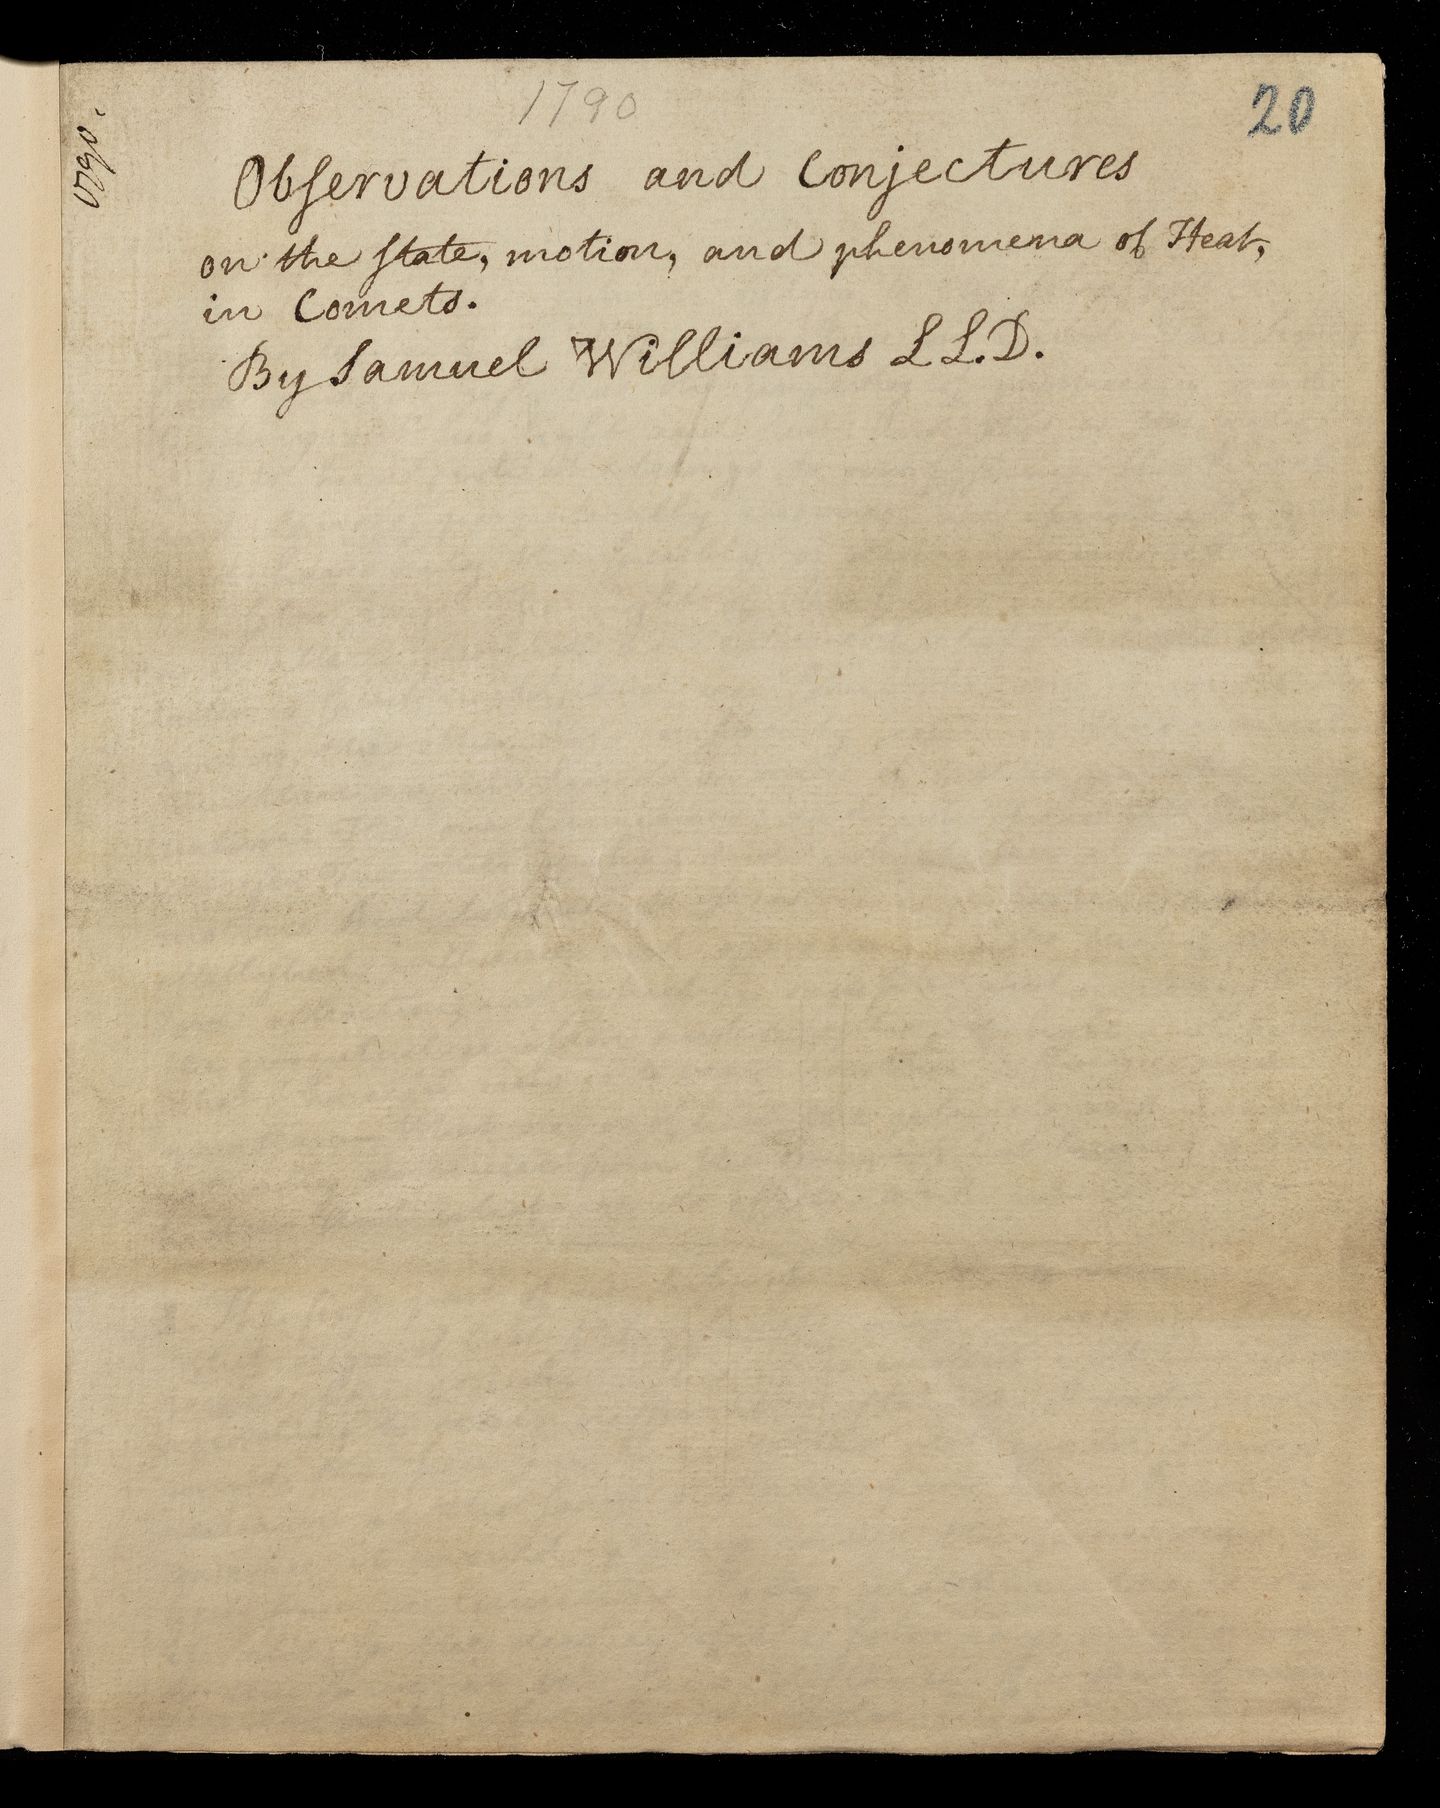 1790
20
1790.
Observations and Conjectures
on the state, motion, and phenomena of Heat,
in Comets.
By Samuel Williams LL.D.